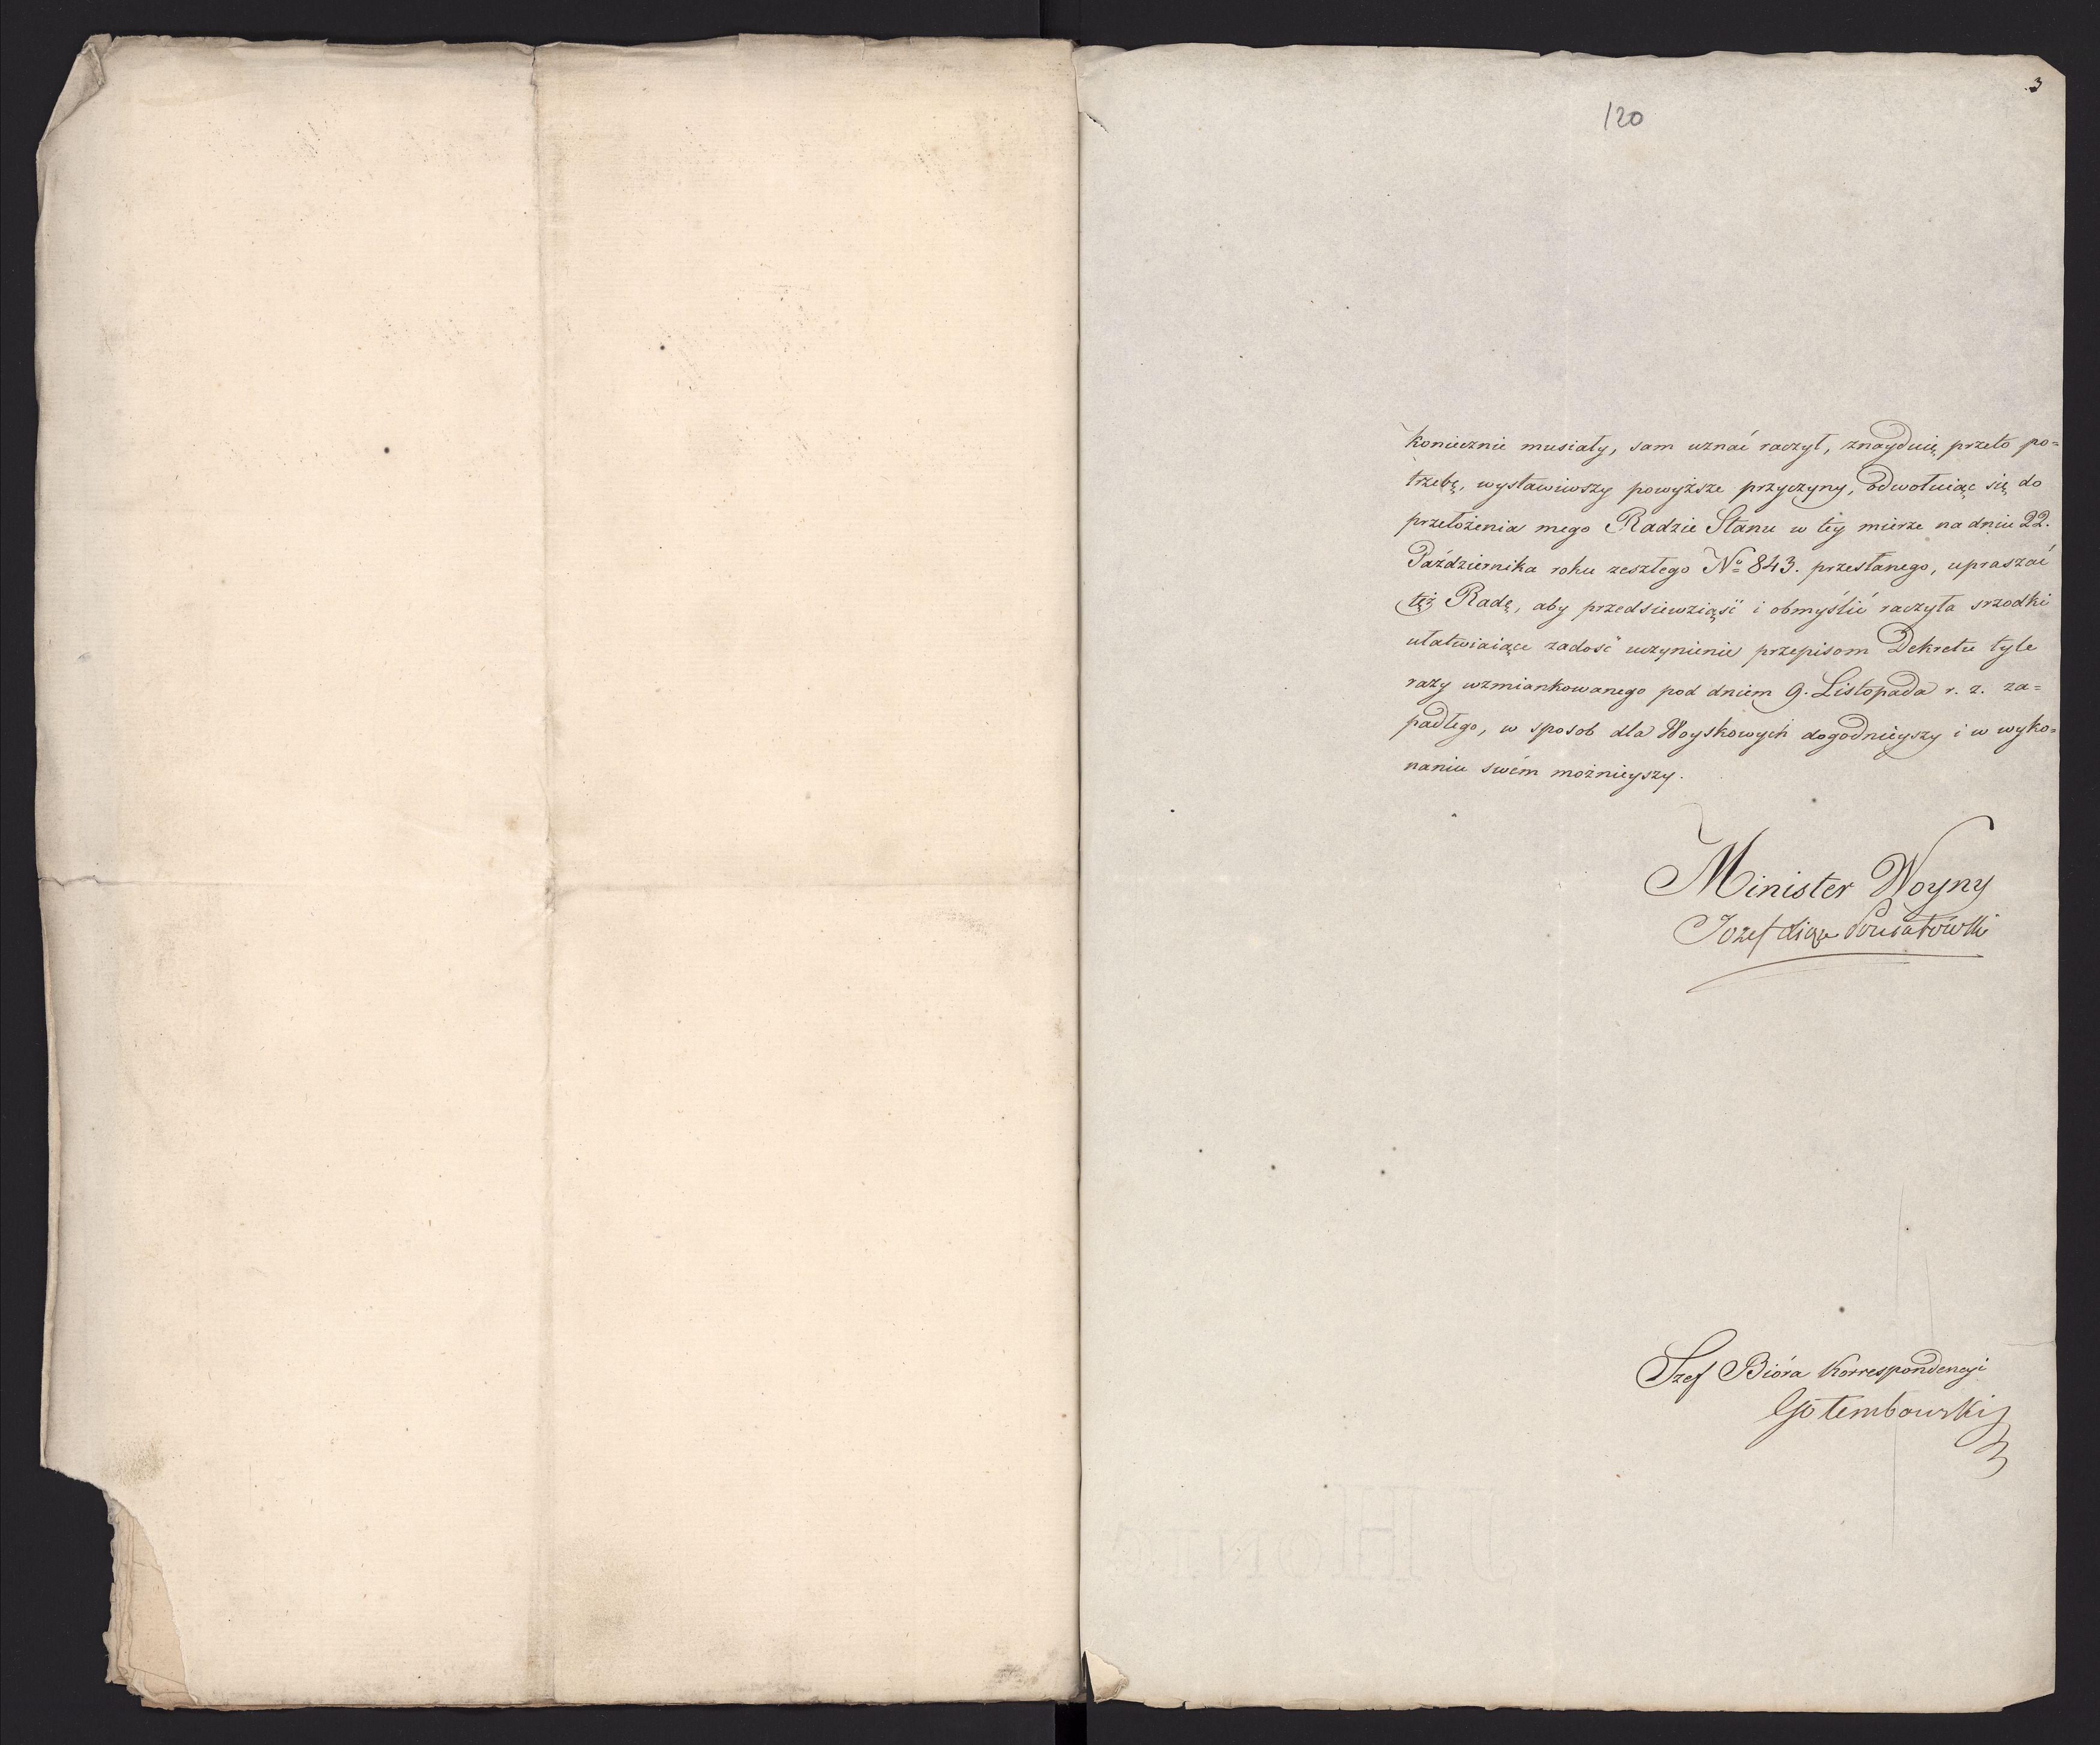 3
120
koniecznie musiały, sam uznać raczył, znayduię przeto po=
trzebę, wystawiwszy powyższe przyczyny, odwołuiąc się do
przełożenia mego Radzie Stanu w tey mierze na dniu 22.
Października roku zeszłego No 843. przesłanego, upraszać
tęż Radę, aby przedsiewziąść i obmyślić raczyła srzodki
ułatwiaiące zadość uczynienie przepisom Dekretu tyle
razy wzmiankowanego pod dniem 9. Listopada r. z. za=
padłego, w sposob dla Woyskowych dogodnieyszy i w wyko=
naniu swém możnieyszy.
Minister Woyny
Jozef Xiąże Poniatowski
Szef Bióra Korrespondencyi
Gołembowski
J HONIG